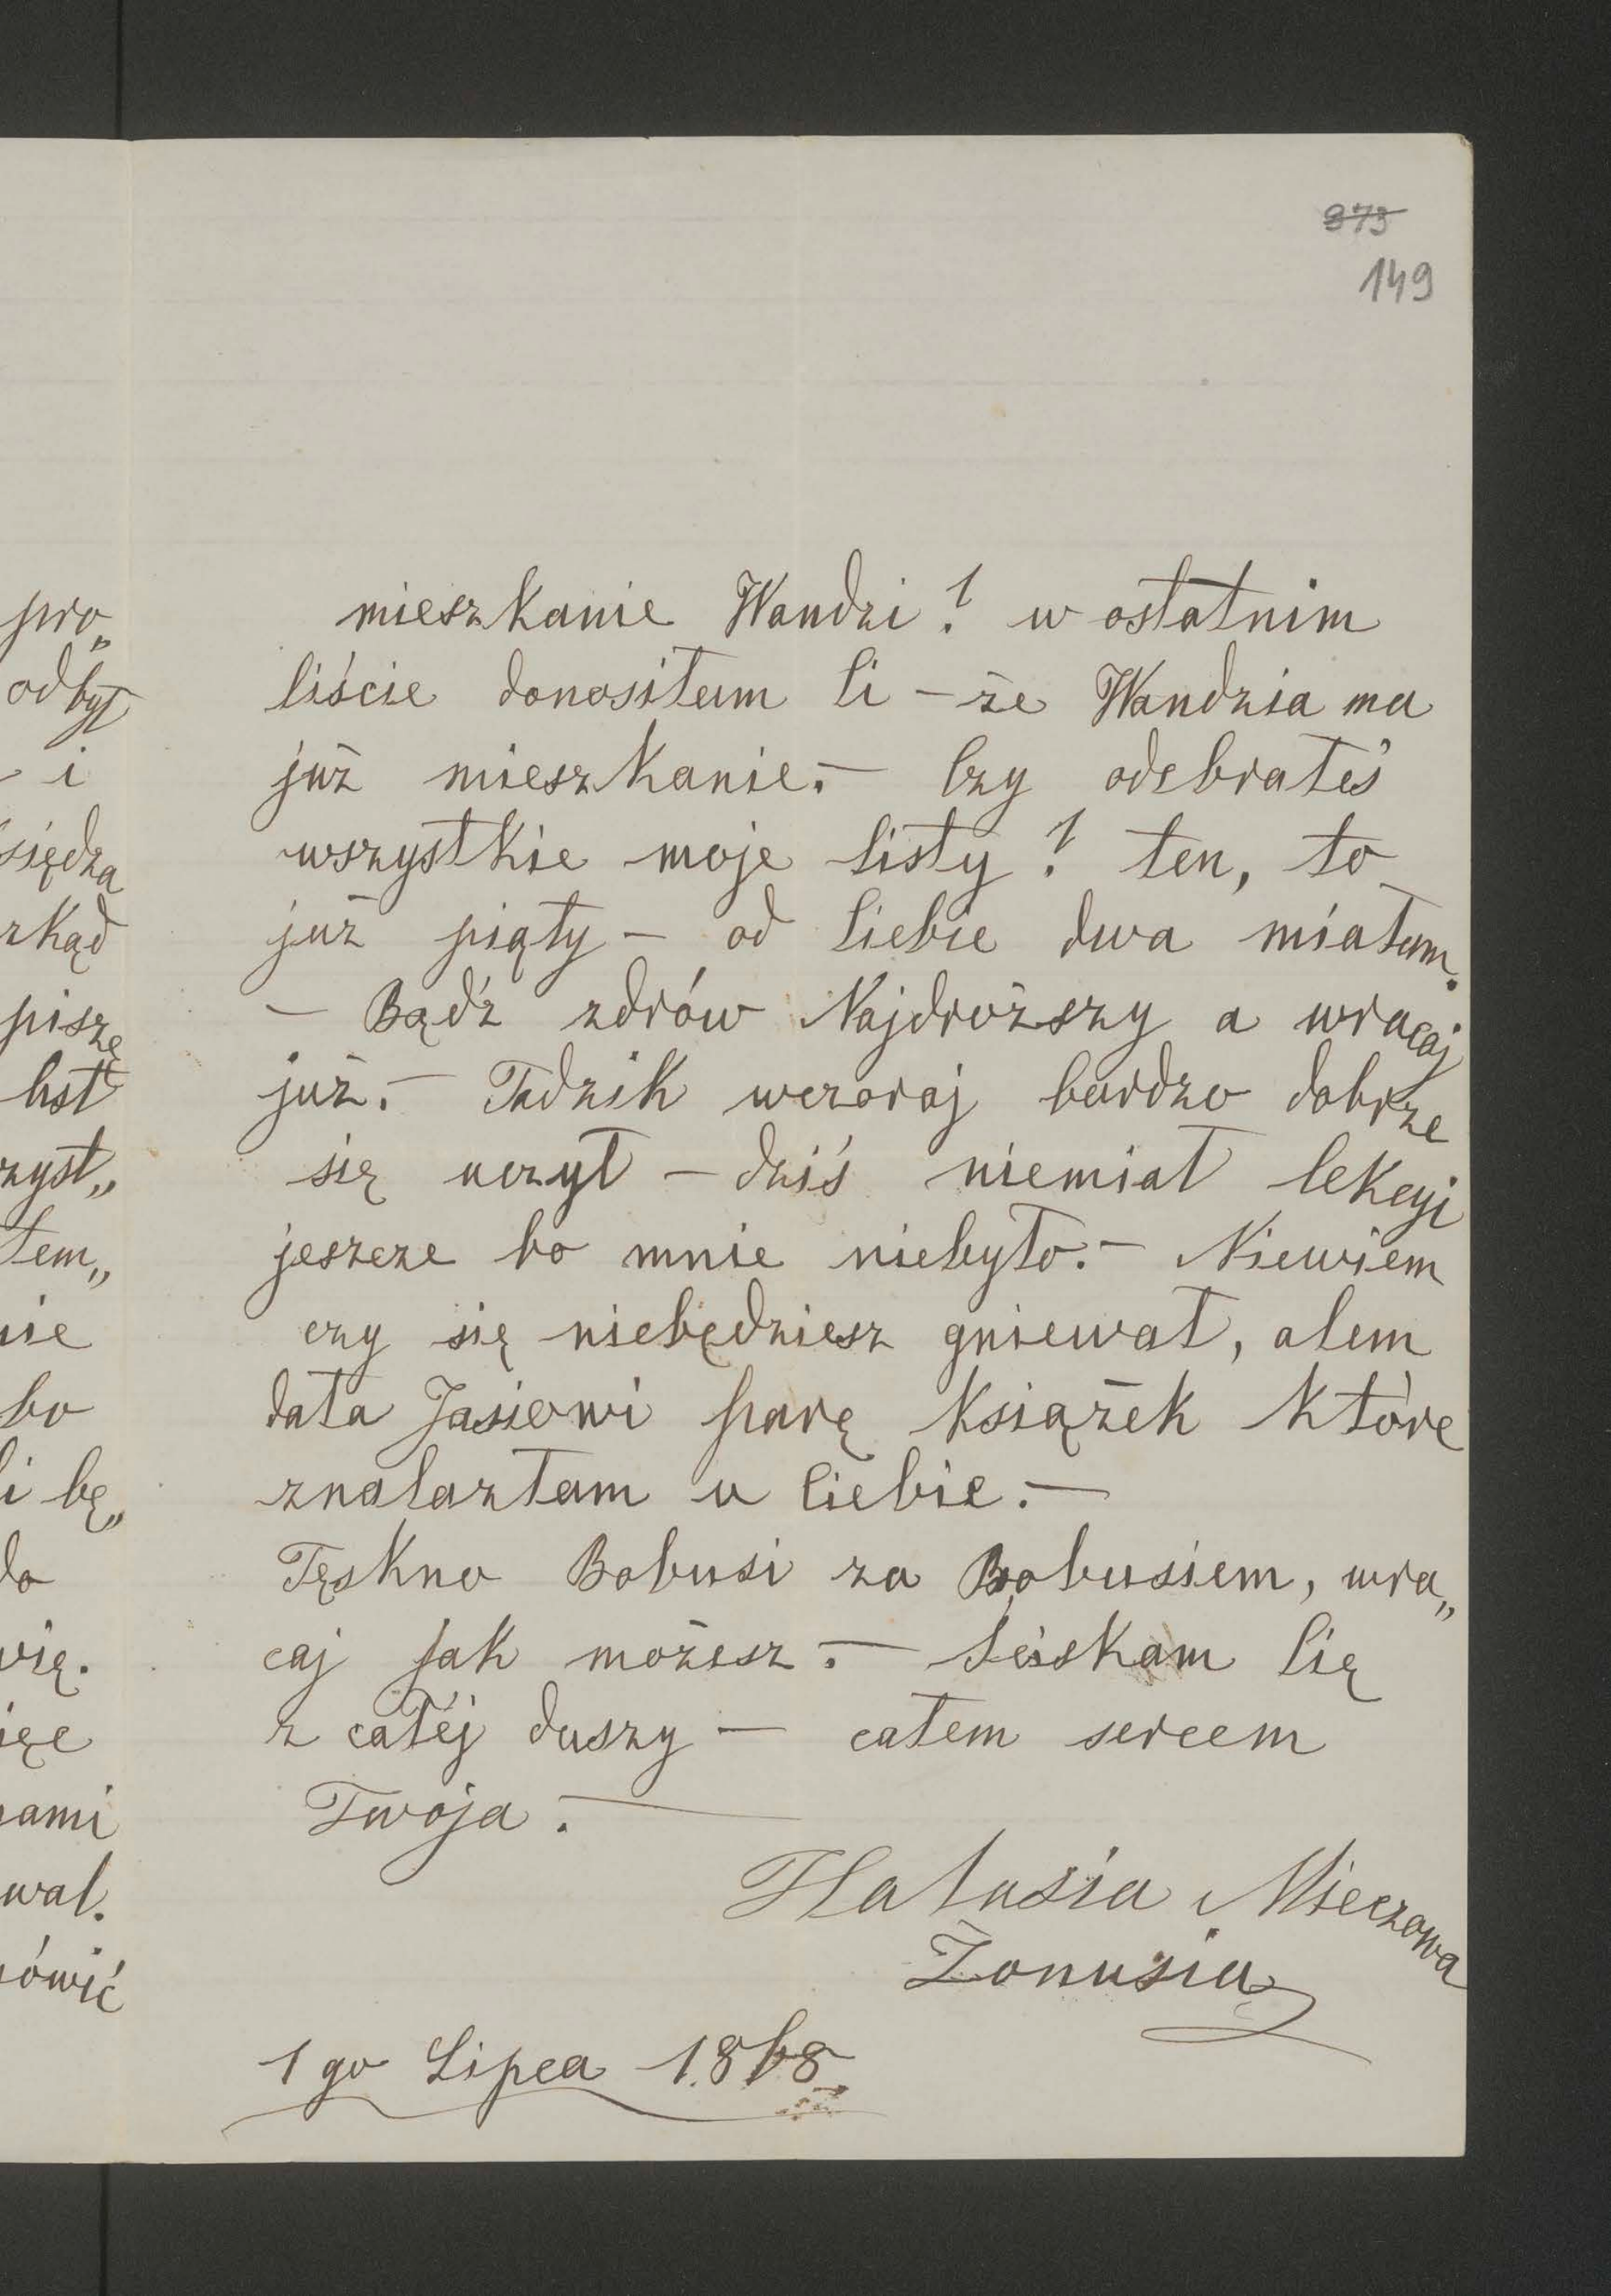 873
149
mieszkanie Wandzi? w ostatnim
liście donosiłam Ci - że Wandzia ma
już mieszkanie. - Czy odebrałeś
wszystkie moje listy? ten, to
już piąty - od Ciebie dwa miałam.
- Bądź zdrów Najdroższy a wracaj
już. - Tadzik wczoraj bardzo dobrze
się uczył - dziś niemiał lekcyi
jeszcze bo mnie niebyło. - Niewiem
czy się niebędziesz gniewał, alem
dała Jasiowi parę książek które
znalazłam u Ciebie. -
Tęskno Bobusi za Bobusiem, wra„
caj jak możesz. - Sciskam Cię
z całéj duszy - całem sercem
Twoja. -
Halusia Mieczowa
Żonusia
1go Lipca 1868.
pro„
odbył
- i
siędza
zkąd
piszę
list
zyst„
tem„
nie
bo
li bę„
do
wię.
ięc
sami
wal.
ówić